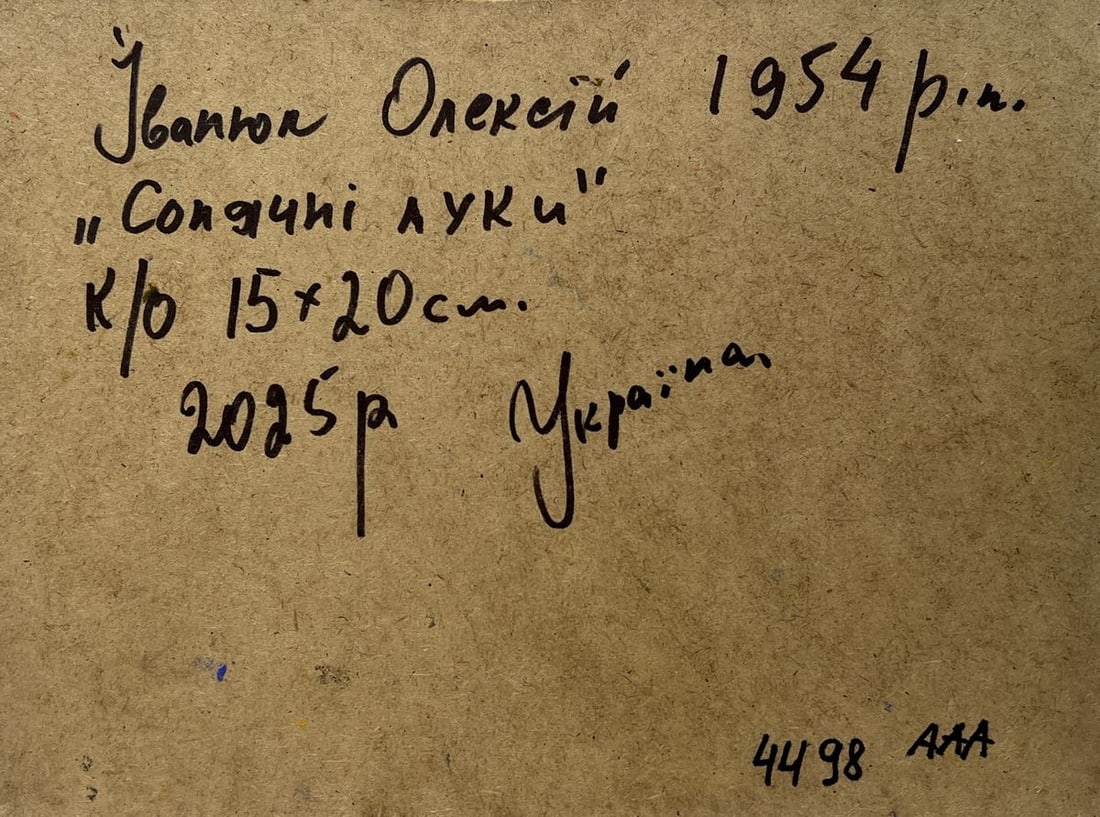 Іванюк Олексій 1954 р.н.
„Сонячні луки"
к/о 15×20 см.
2025р Україна.
4498 AAA